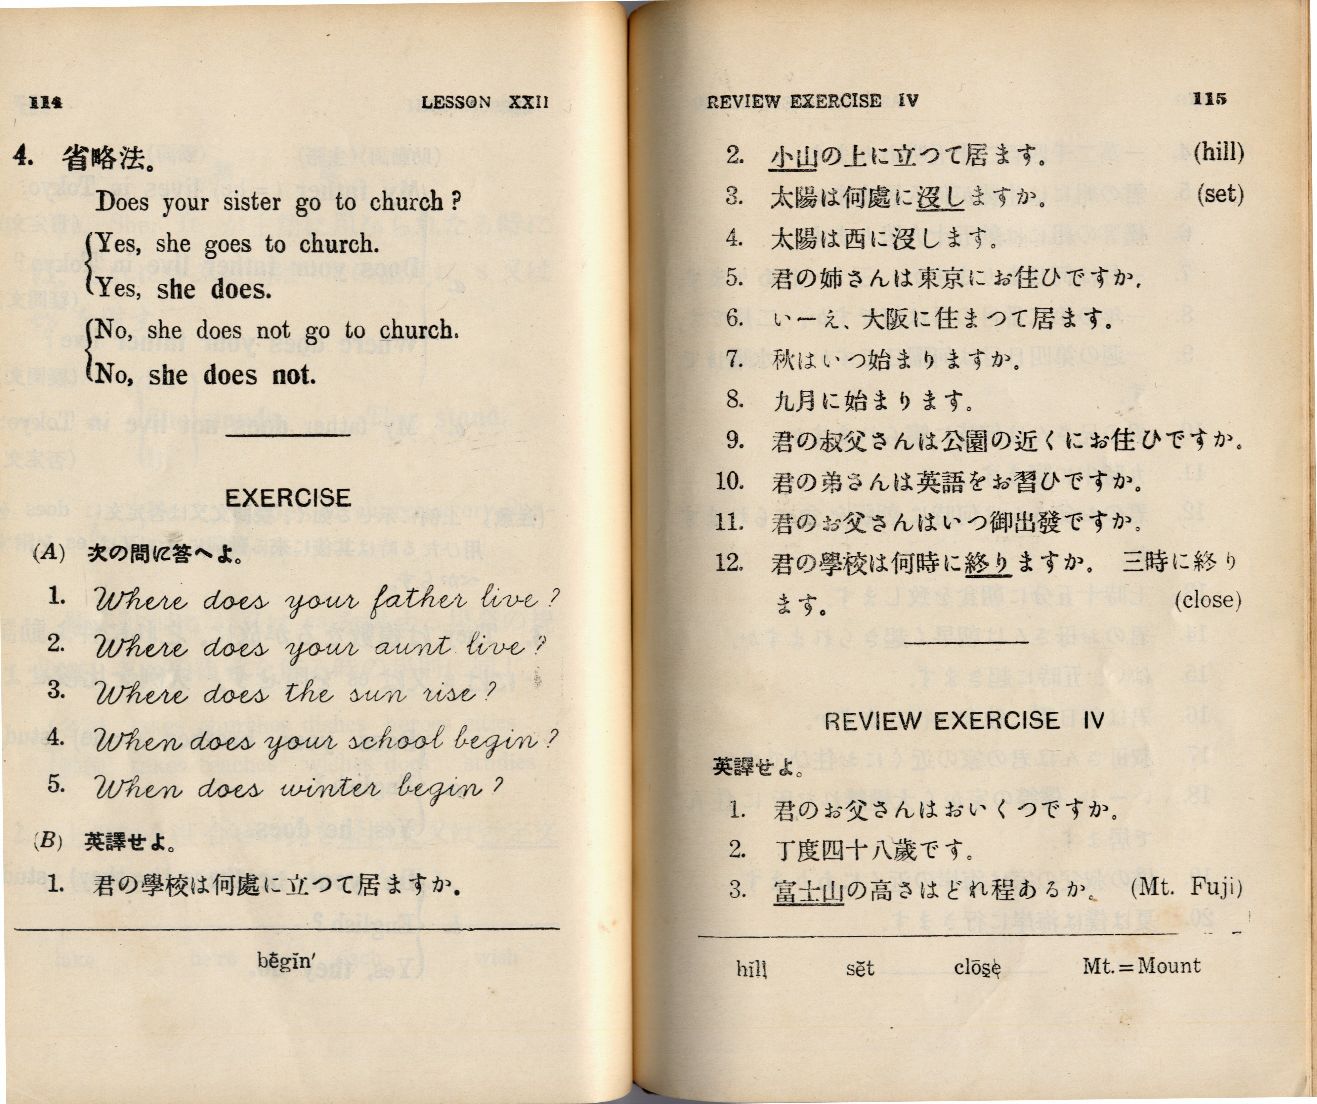 114 LESSON XXII
4. 省略法。
Does your sister go to church?
Yes, she goes to church.
Yes, she does.
No, she does not go to church.
No, she does not.
EXERCISE
(A) 次の問に答へよ。
1. Where does your father live?
2. Where does your aunt live?
3. Where does the sun rise?
4. When does your school begin?
5. When does winter begin?
(B) 英譯せよ。
1. 君の學校は何處に立つて居ますか.
bĕgĭn′
REVIEW EXERCISE IV 115
2. 小山の上に立つて居ます. (hill)
3. 太陽は何處に沒しますか. (set)
4. 太陽は西に沒します.
5. 君の姉さんは東京にお住ひですか.
6. いーえ、大阪に住まつて居ます.
7. 秋はいつ始まりますか.
8. 九月に始まります.
9. 君の叔父さんは公園の近くにお住ひですか.
10. 君の弟さんは英語をお習ひですか.
11. 君のお父さんはいつ御出發ですか.
12. 君の學校は何時に終りますか. 三時に終り
ます. (close)
REVIEW EXERCISE IV
英譯せよ。
1. 君のお父さんはおいくつですか.
2. 丁度四十八歲です.
3. 富士山の高さはどれ程あるか. (Mt. Fuji)
hĭll sĕt clōse Mt.=Mount